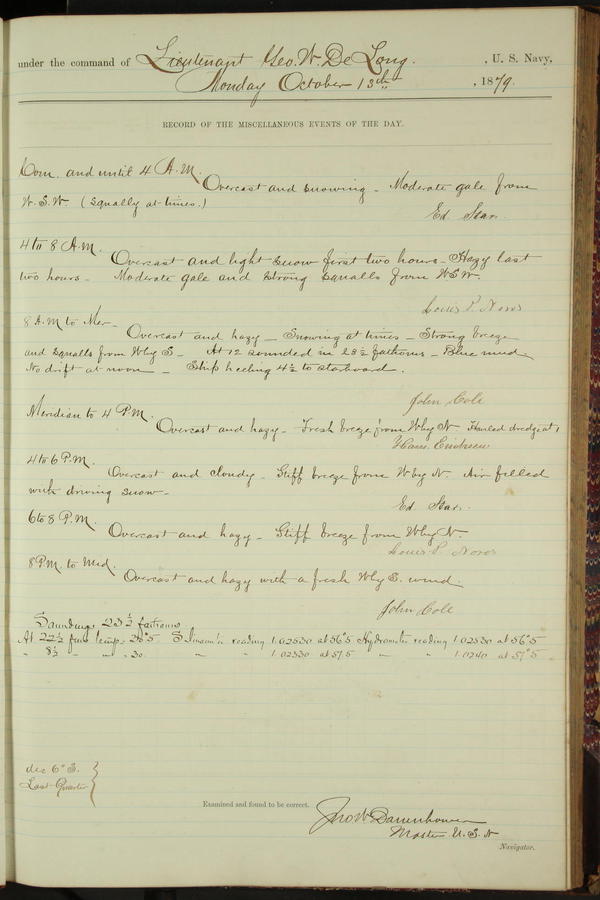 under the command of Lieutenant Geo. W. De Long. , U. S. Navy,
Monday October 13th , 1879.
RECORD OF THE MISCELLANEOUS EVENTS OF THE DAY.
Com. and until 4 A.M.
Overcast and snowing - Moderate gale from
W.S.W. (Squally at times.)
Ed. Star.
4 to 8 A.M.
Overcast and light snow first two hours - Hazy last
two hours - Moderate gale and strong squalls from WSW.
Louis P. Noros
8 A.M. to Mer -
Overcast and hazy - Snowing at times - Strong breeze
and squalls from Wby S - At 12 sounded in 23½ fathoms - Blue mud
No drift at noon - Ship heeling 4½ to starboard.
John Cole
Meridian to 4 P.M.
Overcast and hazy - Fresh breeze from Wby N Hauled dredge at 1
Hans Ericksen
4 to 6 P.M.
Overcast and cloudy - Stiff breeze from W by N. Air filled
with driving snow -
Ed Star.
6 to 8 P.M.
Overcast and hazy - Stiff breeze from Wby N.
Louis P. Noros
8 P.M. to Mid.
Overcast and hazy with a fresh Wby S. wind.
John Cole
Soundings 23½ fathoms
At 22½ fms temp - reading 1.02530 at 56°5 Hydrometer reading 1.02530 at 56°5
" 8½ " " - 30 " " 1.02530 at 57.5 " " 1.0240 at 57°5
dec 6° S.
Last Quarter
Examined and found to be correct.
Jno W Danenhower
Master U.S.N
Navigator.